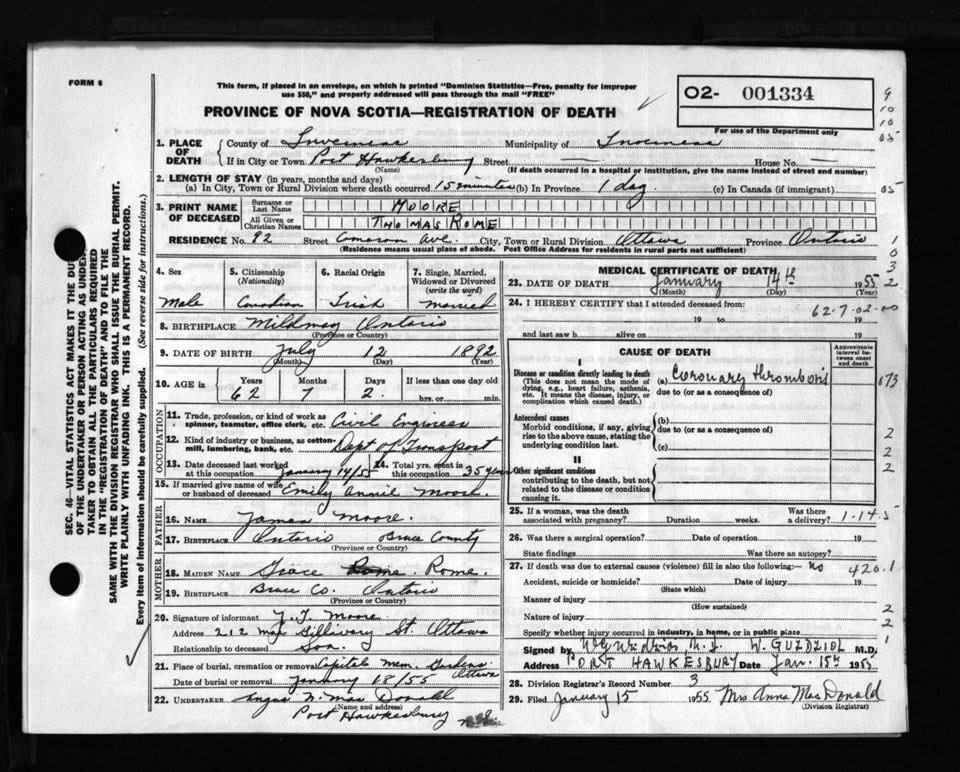 FORM 6
This form, if placed in an envelope, on which is printed "Dominion Statistics—Free, penalty for improper
use $50," and properly addressed will pass through the mail "FREE"
PROVINCE OF NOVA SCOTIA—REGISTRATION OF DEATH
O2- 001334
For use of the Department only
9
10
10
05
05
1
0
3
2
1. PLACE OF DEATH
County of Inverness Municipality of Inverness
If in City or Town Port Hawkesbury Street — House No. —
(Name) (If death occurred in a hospital or institution, give the name instead of street and number)
2. LENGTH OF STAY (in years, months and days)
(a) In City, Town or Rural Division where death occurred 15 minutes (b) In Province 1 day (c) In Canada (if immigrant)
3. PRINT NAME OF DECEASED
Surname or Last Name MOORE
All Given or Christian Names THOMAS ROME
RESIDENCE No. 92 Street Cameron Ave. City, Town or Rural Division Ottawa Province Ontario
(Residence means usual place of abode. Post Office Address for residents in rural parts not sufficient)
4. Sex
Male
5. Citizenship (Nationality)
Canadian
6. Racial Origin
Irish
7. Single, Married, Widowed or Divorced (write the word)
married
8. BIRTHPLACE Mildmay Ontario
(Province or Country)
9. DATE OF BIRTH July 12 1892
(Month) (Day) (Year)
10. AGE in Years Months Days If less than one day old
62 7 2 hrs. or min.
OCCUPATION
11. Trade, profession, or kind of work as spinner, teamster, office clerk, etc. Civil Engineer
12. Kind of industry or business, as cotton-mill, lumbering, bank, etc. Dept of Transport
13. Date deceased last worked at this occupation January 14/55 14. Total yrs. spent in this occupation 35 years
15. If married give name of wife or husband of deceased Emily Annie Moore.
FATHER
16. NAME James Moore.
17. BIRTHPLACE Ontario Bruce County
(Province or Country)
MOTHER
18. MAIDEN NAME Grace Rome.
19. BIRTHPLACE Bruce Co. Ontario
(Province or Country)
20. Signature of informant J. T. Moore
Address 212 Mac Gillivary St. Ottawa
Relationship to deceased Son.
21. Place of burial, cremation or removal Capital Mem. Gardens Ottawa
Date of burial or removal January 18/55
22. UNDERTAKER Angus N. Mac Donald
(Name and address)
Port Hawkesbury N.S.
MEDICAL CERTIFICATE OF DEATH
23. DATE OF DEATH January 14th 1955
(Month) (Day) (Year)
24. I HEREBY CERTIFY that I attended deceased from:
62-7-02-00
19 to 19
and last saw h alive on 19
CAUSE OF DEATH
Approximate interval between onset and death
I
Disease or condition directly leading to death
(This does not mean the mode of dying, e.g., heart failure, asthenia, etc. It means the disease, injury, or complication which caused death.)
(a) Coronary thrombosis
due to (or as a consequence of)
673
Antecedent causes
Morbid conditions, if any, giving rise to the above cause, stating the underlying condition last.
(b)
due to (or as a consequence of)
(c)
2
2
2
II
Other significant conditions
contributing to the death, but not related to the disease or condition causing it.
25. If a woman, was the death associated with pregnancy? Duration weeks. Was there a delivery?
1-14-5
26. Was there a surgical operation? Date of operation 19
State findings Was there an autopsy?
27. If death was due to external causes (violence) fill in also the following:— no
420.1
Accident, suicide or homicide? Date of injury 19
(State which)
Manner of injury
(How sustained)
Nature of injury
2
2
1
Specify whether injury occurred in industry, in home, or in public place
Signed by W. GUZDZIOL M.D.
Address PORT HAWKESBURY Date Jan. 15th 1955
28. Division Registrar's Record Number 3
29. Filed January 15 1955 Mrs Anna MacDonald
(Division Registrar)
SEC. 46—VITAL STATISTICS ACT MAKES IT THE DUTY
OF THE UNDERTAKER OR PERSON ACTING AS UNDER-
TAKER TO OBTAIN ALL THE PARTICULARS REQUIRED
IN THE "REGISTRATION OF DEATH" AND TO FILE THE
SAME WITH THE DIVISION REGISTRAR WHO SHALL ISSUE THE BURIAL PERMIT.
WRITE PLAINLY WITH UNFADING INK. THIS IS A PERMANENT RECORD.
Every item of information should be carefully supplied. (See reverse side for instructions.)